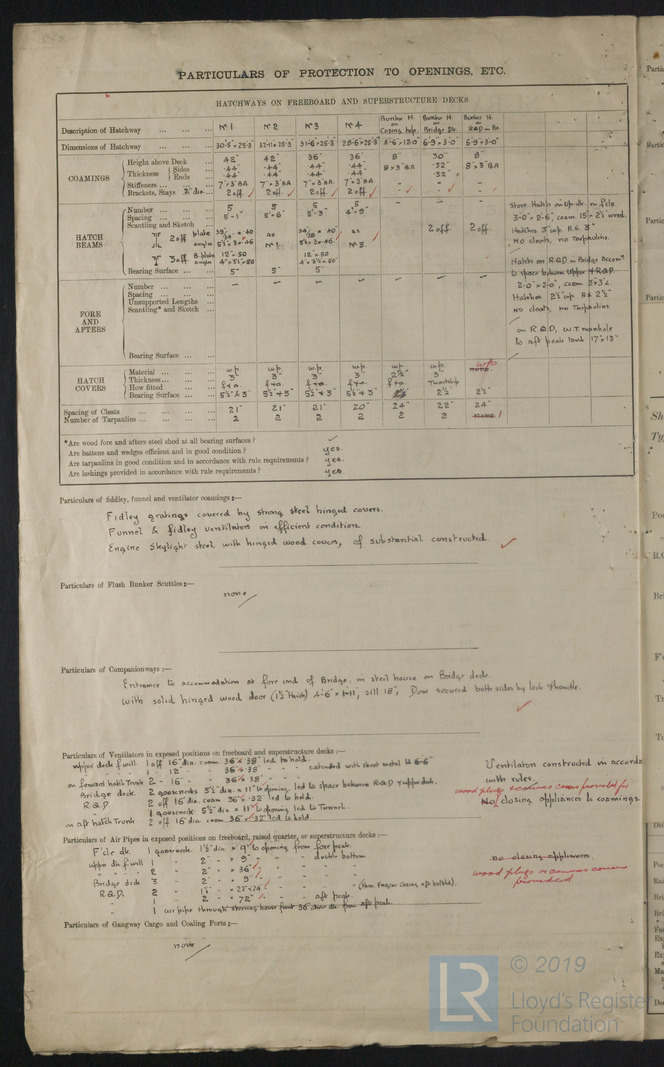 PARTICULARS OF PROTECTION TO OPENINGS, ETC.
HATCHWAYS ON FREEBOARD AND SUPERSTRUCTURE DECKS
Description of Hatchway ... ... ... No 1 No 2 No 3 No 4 Bunker H. on Casing top. Bunker H. on Bridge Dk Bunker H. on RQD in Br.
Dimensions of Hatchway ... ... ... 32'-11"×25'-3 31'-6×25.3 6-9×3-0 6-9×3-0"
COAMINGS
Height above Deck ... 42" 42" 36" 36" 8" 30" 8"
Thickness Sides ... .44" .44" .44" .44" 8×3"BA .32" 8×3"BA
Ends ... .44" .44" .44" .44" .32"
Stiffeners ... 7"×3"BA 7"×3"BA 7"×3"BA 7"×3"BA - - -
Brackets, Stays 2 off 2 off 2 off 2 off - - -
HATCH BEAMS
Number ... ... 5 5 5 5
Spacing ... ... 5'-1" 5'-6" 5'-3" 4'-9"
Scantling and Sketch ...
2 off plate angles as No 1. as No 3. 2 off 2 off
3 off B.plate angles 12"×50 12"×50
Bearing Surface ... 5" 5" 5"
Store Hatch on Up. dk. in f'cle.
3'-0"×2'-6", coam 15"×2½ wood.
Hatches 3" w.p. B.S. 3"
No cleats, no Tarpaulins.
Hatch on RQD in Bridge accom
to space between upper & RQD
2'-0"×2'-0", coam
Hatches 2½" w.p. B.S. 2½"
No cleats, no Tarpaulins
on RQD, W.T. manhole
to aft peak tank 17"×13"
FORE AND AFTERS
Number ... ... ... - - - - - - -
Spacing ... ... ...
Unsupported Lengths ...
Scantling* and Sketch ...
Bearing Surface ... ...
HATCH COVERS
Material ... ... ... w.p. w.p. w.p. w.p. w.p. w.p. none. w.p
Thickness ... ... 3" 3" 3" 3" 2½" 3"
How fitted ... ... f+a. f+a. f+a. f+a. f+a. Thwartship
Bearing Surface ... 5½"+3" 5½"+3" 5½"+3" 5½"+3" 2½ 2½"
Spacing of Cleats ... ... ... 21" 21" 21" 20" 24" 22" 24"
Number of Tarpaulins ... ... ... 2 2 2 2 2 2 none 1
*Are wood fore and afters steel shod at all bearing surfaces ?
Are battens and wedges efficient and in good condition ? yes.
Are tarpaulins in good condition and in accordance with rule requirements ? yes.
Are lashings provided in accordance with rule requirements ? yes.
Particulars of fiddley, funnel and ventilator coamings :—
Fidley gratings covered by strong steel hinged covers.
Funnel & fidley ventilators in efficient condition.
Engine Skylight steel with hinged wood covers, of substantial constructed.
Particulars of Flush Bunker Scuttles :—
none
Particulars of Companionways :—
Entrance to accommodation at fore end of Bridge, in steel house on Bridge deck.
with solid hinged wood door (1½" thick) sill 18", Door secured both sides by lock & handle.
Particulars of Ventilators in exposed positions on freeboard and superstructure decks :—
upper deck f. well 1 off 16" dia. coam 36"×.38" led to hold.
1 - 12" - - 36"×.38 - - extended with sheet metal to 6'-6"
on forward hatch Trunk 2 - 16" - - 36"×.38" - -
Bridge deck. 2 goosenecks 5½" dia × 11" to opening led to space between RQD & upper deck.
R.Q.D. 2 off 16" dia. coam 36"×.32" led to hold.
1 gooseneck 5½" dia × 11" to opening led to Tunnel.
on aft hatch Trunk 2 off 16" dia. coam 36"×.32" led to hold
Ventilators constructed in accorda
with rules.
wood plugs & canvas covers provided for
No closing appliances to coamings.
Particulars of Air Pipes in exposed positions on freeboard, raised quarter, or superstructure decks :—
F'cle dk. 1 gooseneck 1½" dia × 9" to opening from fore peak.
upper dk. f. well 1 - 2" - × 9" - - - double bottom
- - - 2 - 2" - × 36" - - - -
Bridge deck 3 - 2" - × 9" - - - -
R.Q.D. 2 - 1½" - × 22"×24" - - - - (from Engine Casing aft bulkhd).
- 1 - 2 - × 72" - - - aft peak.
1 air pipe through steering house front 36" above dk from aft peak
no closing appliances
wood plugs & canvas covers
provided
Particulars of Gangway Cargo and Coaling Ports :—
none
LR
© 2019
Lloyd's Register
Foundation